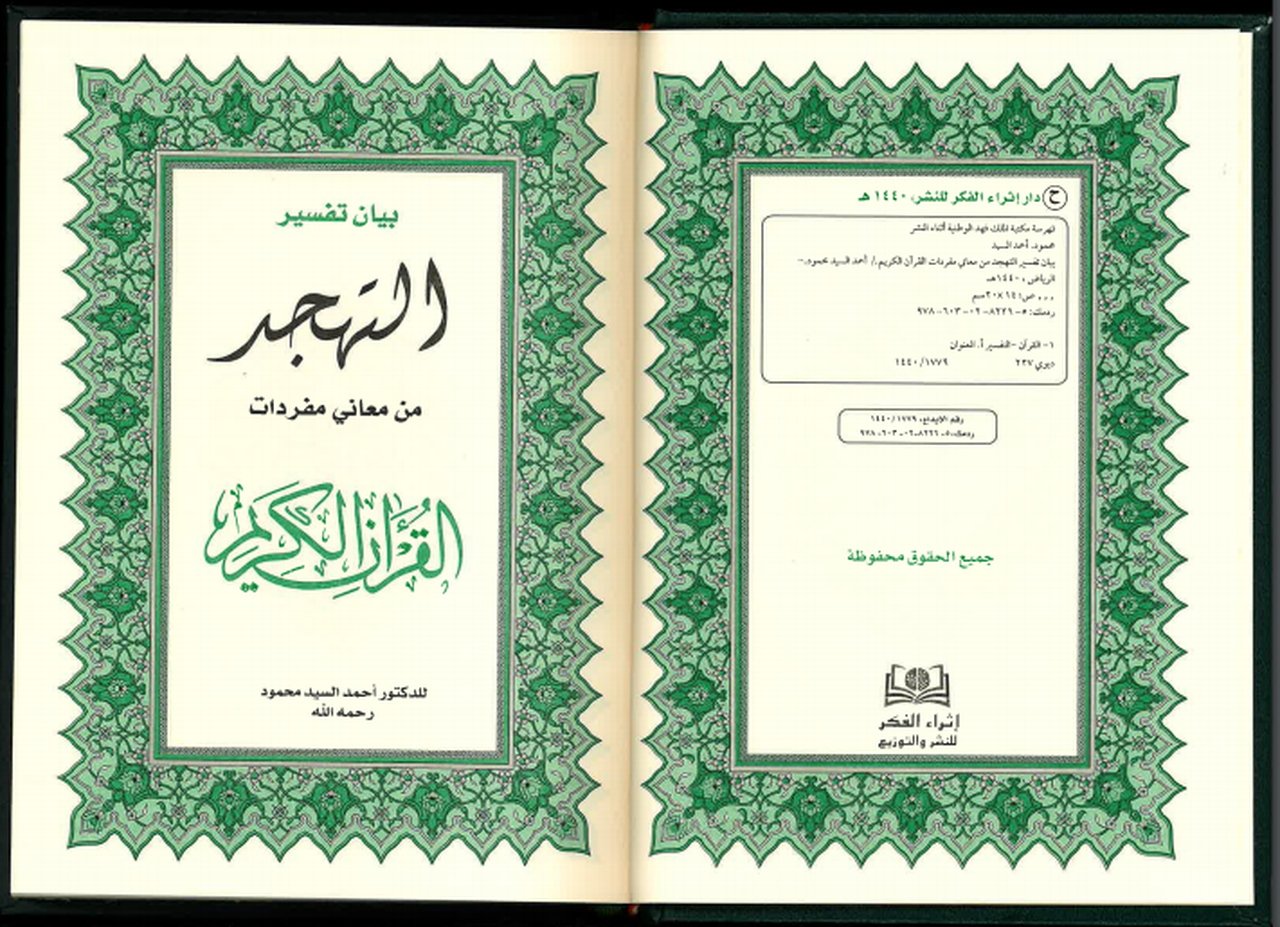 ح دار إثراء الفكر للنشر، ١٤٤٠ هـ
فهرسة مكتبة الملك فهد الوطنية أثناء النشر
محمود، أحمد السيد
بيان تفسير التهجد من معاني مفردات القرآن الكريم./ أحمد السيد محمود.-
الرياض، ١٤٤٠هـ
٠٠٠ ص؛ ١٤×٢٠سم
ردمك: ٥-٨٢٢٦-٠٢-٦٠٣-٩٧٨
١- القرآن -التفسير أ. العنوان
ديوي ٢٢٧ ١٤٤٠/١٧٧٩
رقم الإيداع: ١٤٤٠/١٧٧٩
ردمك: ٥-٨٢٢٦-٠٢-٦٠٣-٩٧٨
جميع الحقوق محفوظة
إثراء الفكر
للنشر والتوزيع
بيان تفسير
التهجد
من معاني مفردات
القُرآن الكَرِيم
للدكتور أحمد السيد محمود
رحمه الله